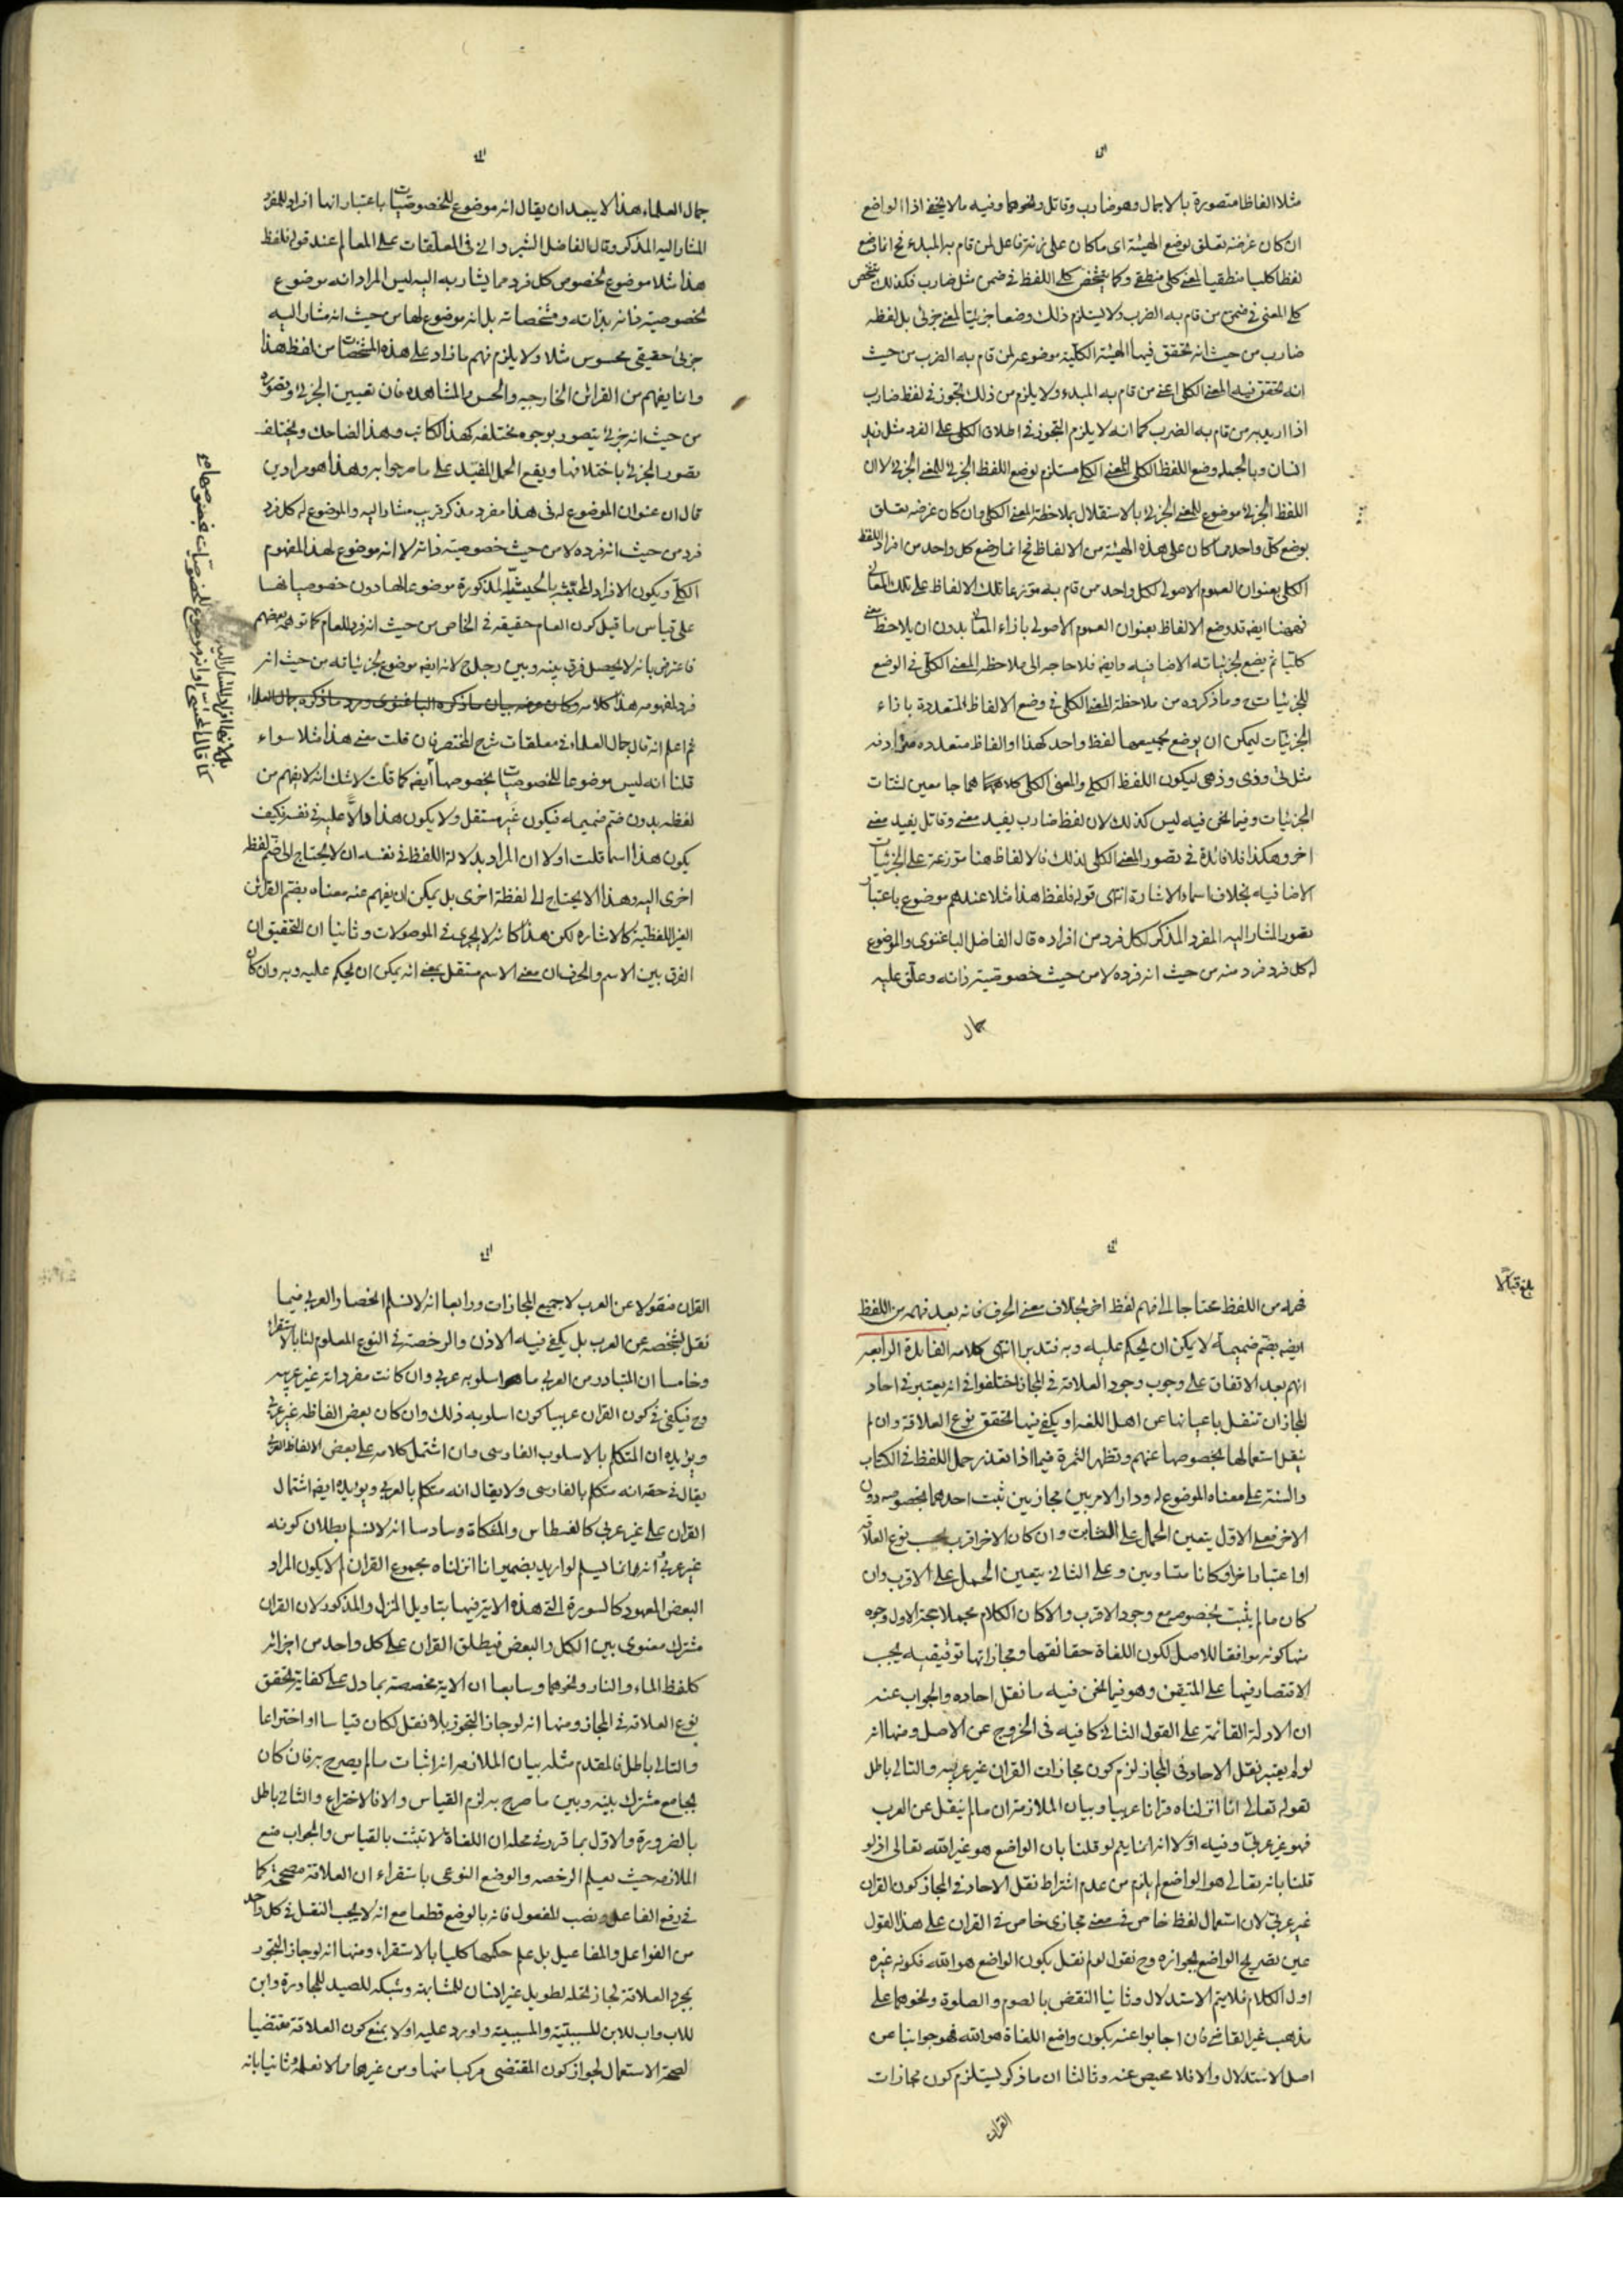 مثلا الفاظا متصورة بالاجمال وهو ضارب وقاتل ونحوهما وفيه ما لا يخفى اذا الواضع
ان كان غرضه تعلق بوضع الهيئة اى ما كان على زنة فاعل لمن قام به المبدء فح انما وضع
لفظا كليا منطقيا لمعنى كلى منطقى وكما يتشخص كلى اللفظ فى ضمن مثل ضارب فكذلك يتشخص
كلى المعنى فى ضمن من قام به الضرب ولا يستلزم ذلك وضعا جزئيا لمعنى جزئى بل لفظه
ضارب من حيث انه تحقق فيها الهيئة الكلية موضوعه لمن قام به الضرب من حيث
انه تحقق فيه المعنى الكلى اعنى من قام به المبدء ولا يلزم من ذلك تجوز فى لفظ ضارب
اذا اريد به من قام به الضرب كما انه لا يلزم التجوز فى اطلاق الكلى على الفرد مثل زيد
انسان وبالجمله وضع اللفظ الكلى للمعنى الكلى مستلزم لوضع اللفظ الجزئى للمعنى الجزئى لا ان
اللفظ الجزئى موضوع للمعنى الجزئى بالاستقلال بملاحظة المعنى الكلى وان كان غرضه تعلق
بوضع كل واحد مما كان على هذه الهيئة من الالفاظ فح انما وضع كل واحد من افراد اللفظ
الكلى بعنوان العموم الاصولى لكل واحد من قام به متوزعا تلك الالفاظ على تلك المعانى
فههنا ايضه قد وضع الالفاظ بعنوان العموم الاصولى بازاء المعانى بدون ان يلاحظ معنى
كليا ثم يضع لجزئياته الاضافيه وايضه فلا حاجه الى ملاحظه المعنى الكلى فى الوضع
للجزئيات وما ذكروه من ملاحظة المعنى الكلى فى وضع الالفاظ المتعددة بازاء
الجزئيات ليمكن ان يوضع لجميعها لفظ واحد كهذا او الفاظ متعدده مترادفه
مثل تى وذى وذهى ليكون اللفظ الكلى والمعنى الكلى كلاهما هما جامعين لشتات
الجزئيات وفيما نحن فيه ليس كذلك لان لفظ ضارب يفيد معنى وقاتل يفيد معنى
اخر وهكذا فلا فائدة فى تصور المعنى الكلى لذلك فالالفاظ هنا متوزعة على الجزئيات
الاضافيه بخلاف اسماء الاشارة انتهى قوله فلفظ هذا مثلا عندهم موضوع باعتبار
تصور المشار اليه المفرد المذكر لكل فرد من افراده قال الفاضل الباغنوى والموضوع
له كل فرد فرد منه من حيث انه فرده لا من حيث خصوصية ذاته وعلق عليه
جمال
جمال العلماء هذا لا يبعد ان يقال انه موضوع للخصوصيات باعتبار انها افراد للمفرد
المشار اليه المذكر وقال الفاضل الشيروانى فى المعلقات على المعالم عند قوله فلفظ
هذا مثلا موضوع لخصوص كل فرد مما يشار به اليه ليس المراد انه موضوع
لخصوصية فانه بذاته ومشخصاته بل انه موضوع لها من حيث انه مشار اليه
جزئى حقيقى محسوس مثلا ولا يلزم فهم ما زاد على هذه المشخصات من لفظ هذا
وانما يفهم من القرائن الخارجيه والحس والمشاهده فان تعيين الجزئى وتصوره
من حيث انه جزئى يتصور بوجوه مختلفه كهذا الكاتب وهذا الضاحك ويختلف
تصور الجزئى باختلافها ويقع الحمل المفيد على ما مر جوابه وهذا هو مراد من
قال ان عنوان الموضوع له فى هذا مفرد مذكر قريب مشار اليه والموضوع له كل فرد
فرد من حيث انه فرده لا من حيث خصوصية ذاته لا انه موضوع لهذا المفهوم
الكلى ويكون الافراد المحيثية بالحيثية المذكورة موضوعا لها دون خصوصياتها
على قياس ما قيل كون العام حقيقه فى الخاص من حيث انه فرد للعام كما توهمه بعضهم
فاعترض بانه لا يحصل فرق بينه وبين رجل ح لانه ايضه موضوع لجزئياته من حيث انه
فرد لمفهومه هذا كلامه وكان غرضه بيان ما ذكره الباغنوى ورد ما ذكره جمال العلماء
ثم اعلم انه قال جمال العلماء فى معلقات شرح المختصر فان قلت معنى هذا مثلا سواء
قلنا انه ليس موضوعا للخصوصيات بخصوصها ايضه كما قلت لا شك انه لا يفهم من
لفظه بدون ضم ضميمه فيكون غير مستقل ولا يكون هذا دالا عليه فى نفسه فكيف
يكون هذا اسما قلت اولا ان المراد بدلالة اللفظ فى نفسه ان لا يحتاج الى ضم لفظ
اخرى اليه وهذا لا يحتاج الى لفظة اخرى بل يمكن ان يفهم عنه معناه بضم القرائن
الغير اللفظية كالاشاره لكن هذا كانه لا يجرى فى الموصولات وثانيا ان التحقيق ان
الفرق بين الاسم والحرف ان معنى الاسم مستقل بمعنى انه يمكن ان يحكم عليه وبه وان كان
بلغ قبالا
فهمه من اللفظ محتاجا الى فهم لفظ اخر بخلاف معنى الحرف فانه بعد فهمه من اللفظ
ايضه بضم ضميمة لا يمكن ان يحكم عليه وبه فتدبر انتهى كلامه الفائدة الرابعه
انهم بعد الاتفاق على وجوب وجود العلاقة فى المجاز اختلفوا فى انه يعتبر فى احاد
المجاز ان تنقل باعيانها عن اهل اللغه او يكفى فيها تحقق نوع العلاقة وان لم
ينقل استعمالها بخصوصها عنهم وتظهر الثمرة فيما اذا تعذر حمل اللفظ فى الكتاب
والسنة على معناه الموضوع له ودار الامر بين مجازين ثبت احدهما بخصوصه دون
الاخر فعلى الاول يتعين الحمل على الثابت وان كان الاخر اقرب بحسب نوع العلاقة
او اعتبار اخر او كانا متساويين وعلى الثانى يتعين الحمل على الاقرب وان
كان ما لم يثبت بخصوصه مع وجود الاقرب والا كان الكلام مجملا حجة الاول وجوه
منها كونه موافقا للاصل لكون اللغاة حقائقها ومجازاتها توقيفيه يجب
الاقتصار فيها على المتيقن وهو فيما نحن فيه ما نقل احاده والجواب عنه
ان الادلة القائمة على القول الثانى كافيه فى الخروج عن الاصل ومنها انه
لو لم يعتبر نقل الاحاد فى المجاز لزم كون مجازات القران غير عربيه والتالى باطل
لقوله تعالى انا انزلناه قرانا عربيا وبيان الملازمة ان ما لم ينقل عن العرب
فهو غير عربى وفيه اولا انه انما يتم لو قلنا بان الواضع هو غير الله تعالى اذ لو
قلنا بانه تعالى هو الواضع لم يلزم من عدم اشتراط نقل الاحاد فى المجاز كون القران
غير عربى لان استعمال لفظ خاص فى معنى مجازى خاص فى القران على هذا القول
عين تصريح الواضع بجوازه وح نقول لو لم نقل بكون الواضع هو الله فكونه غيره
اول الكلام فلا يتم الاستدلال وثانيا النقض بالصوم والصلوة ونحوهما على
مذهب غير القاضى فان اجابوا عنه بكون واضع اللغاة هو الله فهو جوابنا عن
اصل الاستدلال والا فلا محيص عنه وثالثا ان ما ذكر يستلزم كون مجازات
القران
القران منقولا عن العرب لا جميع المجازات ورابعا انه لا نسلم انحصار العربى فيما
نقل بشخصه عن العرب بل يكفى فيه الاذن والرخصة فى النوع المعلوم لنا بالاستقراء
وخامسا ان المتبادر من العربى ما هو اسلوبه عربى وان كانت مفرداته غير عربيه
وح فيكفى فى كون القران عربيا كون اسلوبه ذلك وان كان بعض الفاظه غير عربى
ويؤيده ان المتكلم بالاسلوب الفارسى وان اشتمل كلامه على بعض الالفاظ العربى
يقال فى حقه انه متكلم بالفارسى ولا يقال انه متكلم بالعربى ويؤيده ايضه اشتمال
القران على غير عربى كالقسطاس والمشكاة وسادسا انه لا نسلم بطلان كونه
غير عربى انه انما يسلم لو اريد بضمير انا انزلناه مجموع القران لم لا يكون المراد
البعض المعهود كالسورة التى هذه الاية فيها بتاويل المنزل والمذكور لان القران
مشترك معنوى بين الكل والبعض فيطلق القران على كل واحد من اجزائه
كلفظ الماء والنار ونحوهما وسابعا ان الاية مخصصة بما دل على كفاية تحقق
نوع العلاقة فى المجاز ومنها انه لو جاز التجوز بلا نقل لكان قياسا او اختراعا
والتالى باطل فالمقدم مثله بيان الملازمه انه اثبات ما لم يصرح به فان كان
لجامع مشترك بينه وبين ما صرح به لزم القياس والا فالاختراع والثانى باطل
بالضرورة والاول بما قرر فى محله ان اللغاة لا تثبت بالقياس والجواب منع
الملازمه حيث يعلم الرخصه والوضع النوعى باستقراء ان العلاقة مصححة كما
فى رفع الفاعل ونصب المفعول فانه بالوضع قطعا مع انه لا يجب النقل فى كل واحد
من الفواعل والمفاعيل بل علم حكمها كليا بالاستقراء ومنها انه لو جاز التجوز
بمجرد العلاقة لجاز نخله لطويل غير انسان للمشابهة وشبكه للصيد للمجاورة وابن
للاب واب للابن للسببية والمسببية واورد عليه اولا بمنع كون العلاقة مقتضيا
لصحة الاستعمال لجواز كون المقتضى مركبا منها ومن غيرها مما لا نعلمه وثانيا بانه